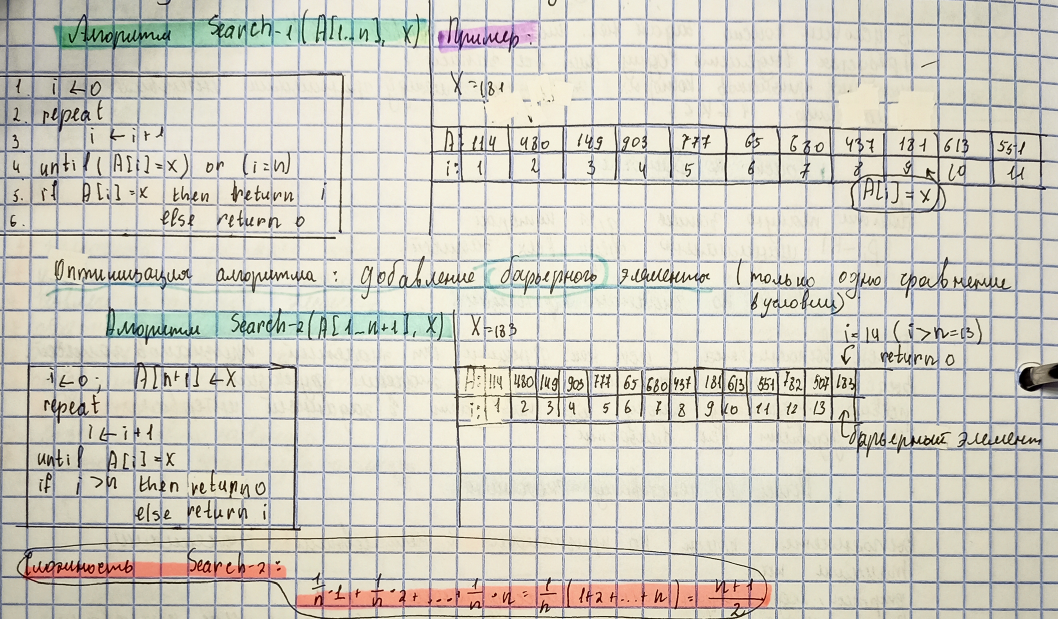 Алгоритм Search-1(A[1..n], X)
1. i ← 0
2. repeat
3 i ← i+1
4 until (A[i]=x) or (i=n)
5. if A[i]=x then return i
6. else return 0
Пример:
X=181
A: 114 480 149 903 777 65 680 437 181 613 551
i: 1 2 3 4 5 6 7 8 9 10 11
A[i]=x
Оптимизация алгоритма: добавление барьерного элемента (только одно сравнение
в условии)
Алгоритм Search-2(A[1..n+1], X)
i ← 0; A[n+1] ← X
repeat
i ← i+1
until A[i]=x
if i>n then return 0
else return i
X=183
i=14 (i>n=13)
return 0
A: 114 480 149 903 777 65 680 437 181 613 551 782 507 183
i: 1 2 3 4 5 6 7 8 9 10 11 12 13
барьерный элемент
Сложность Search-2:
1/n·1 + 1/n·2 + ... + 1/n·n = 1/n (1+2+...+n) = n+1/2